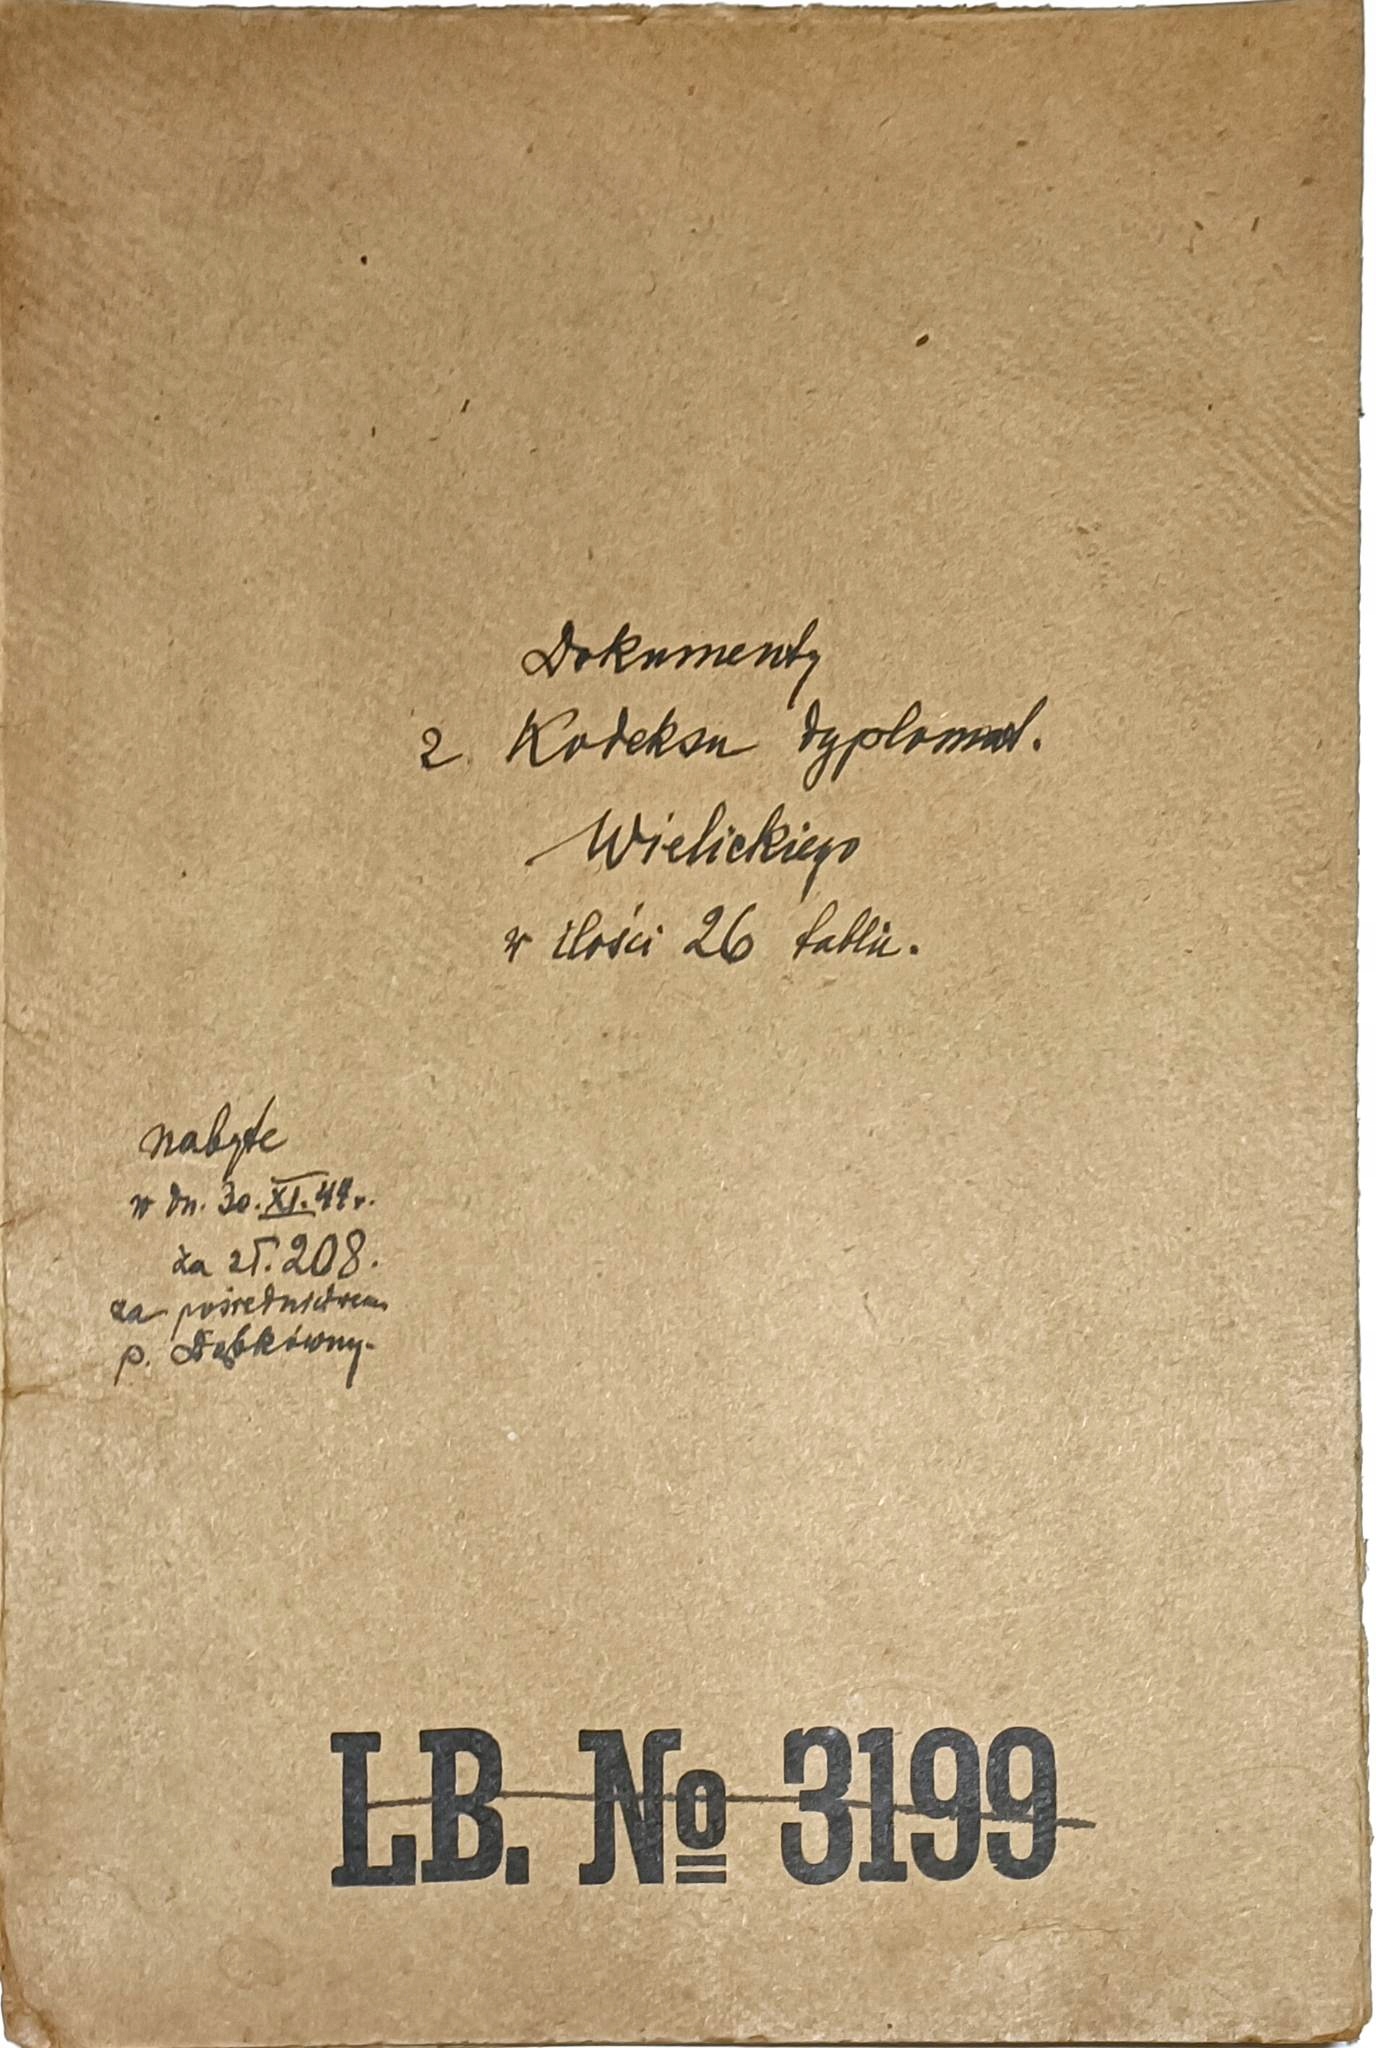 Dokumenty
z Kodeksu dyplomat.
Wielickiego
w ilości 26 tablic.
nabyte
w dn. 30.XI.44r.
za zł. 208.
za pośrednictwem
p. Dąbkówny.
LB. No 3199